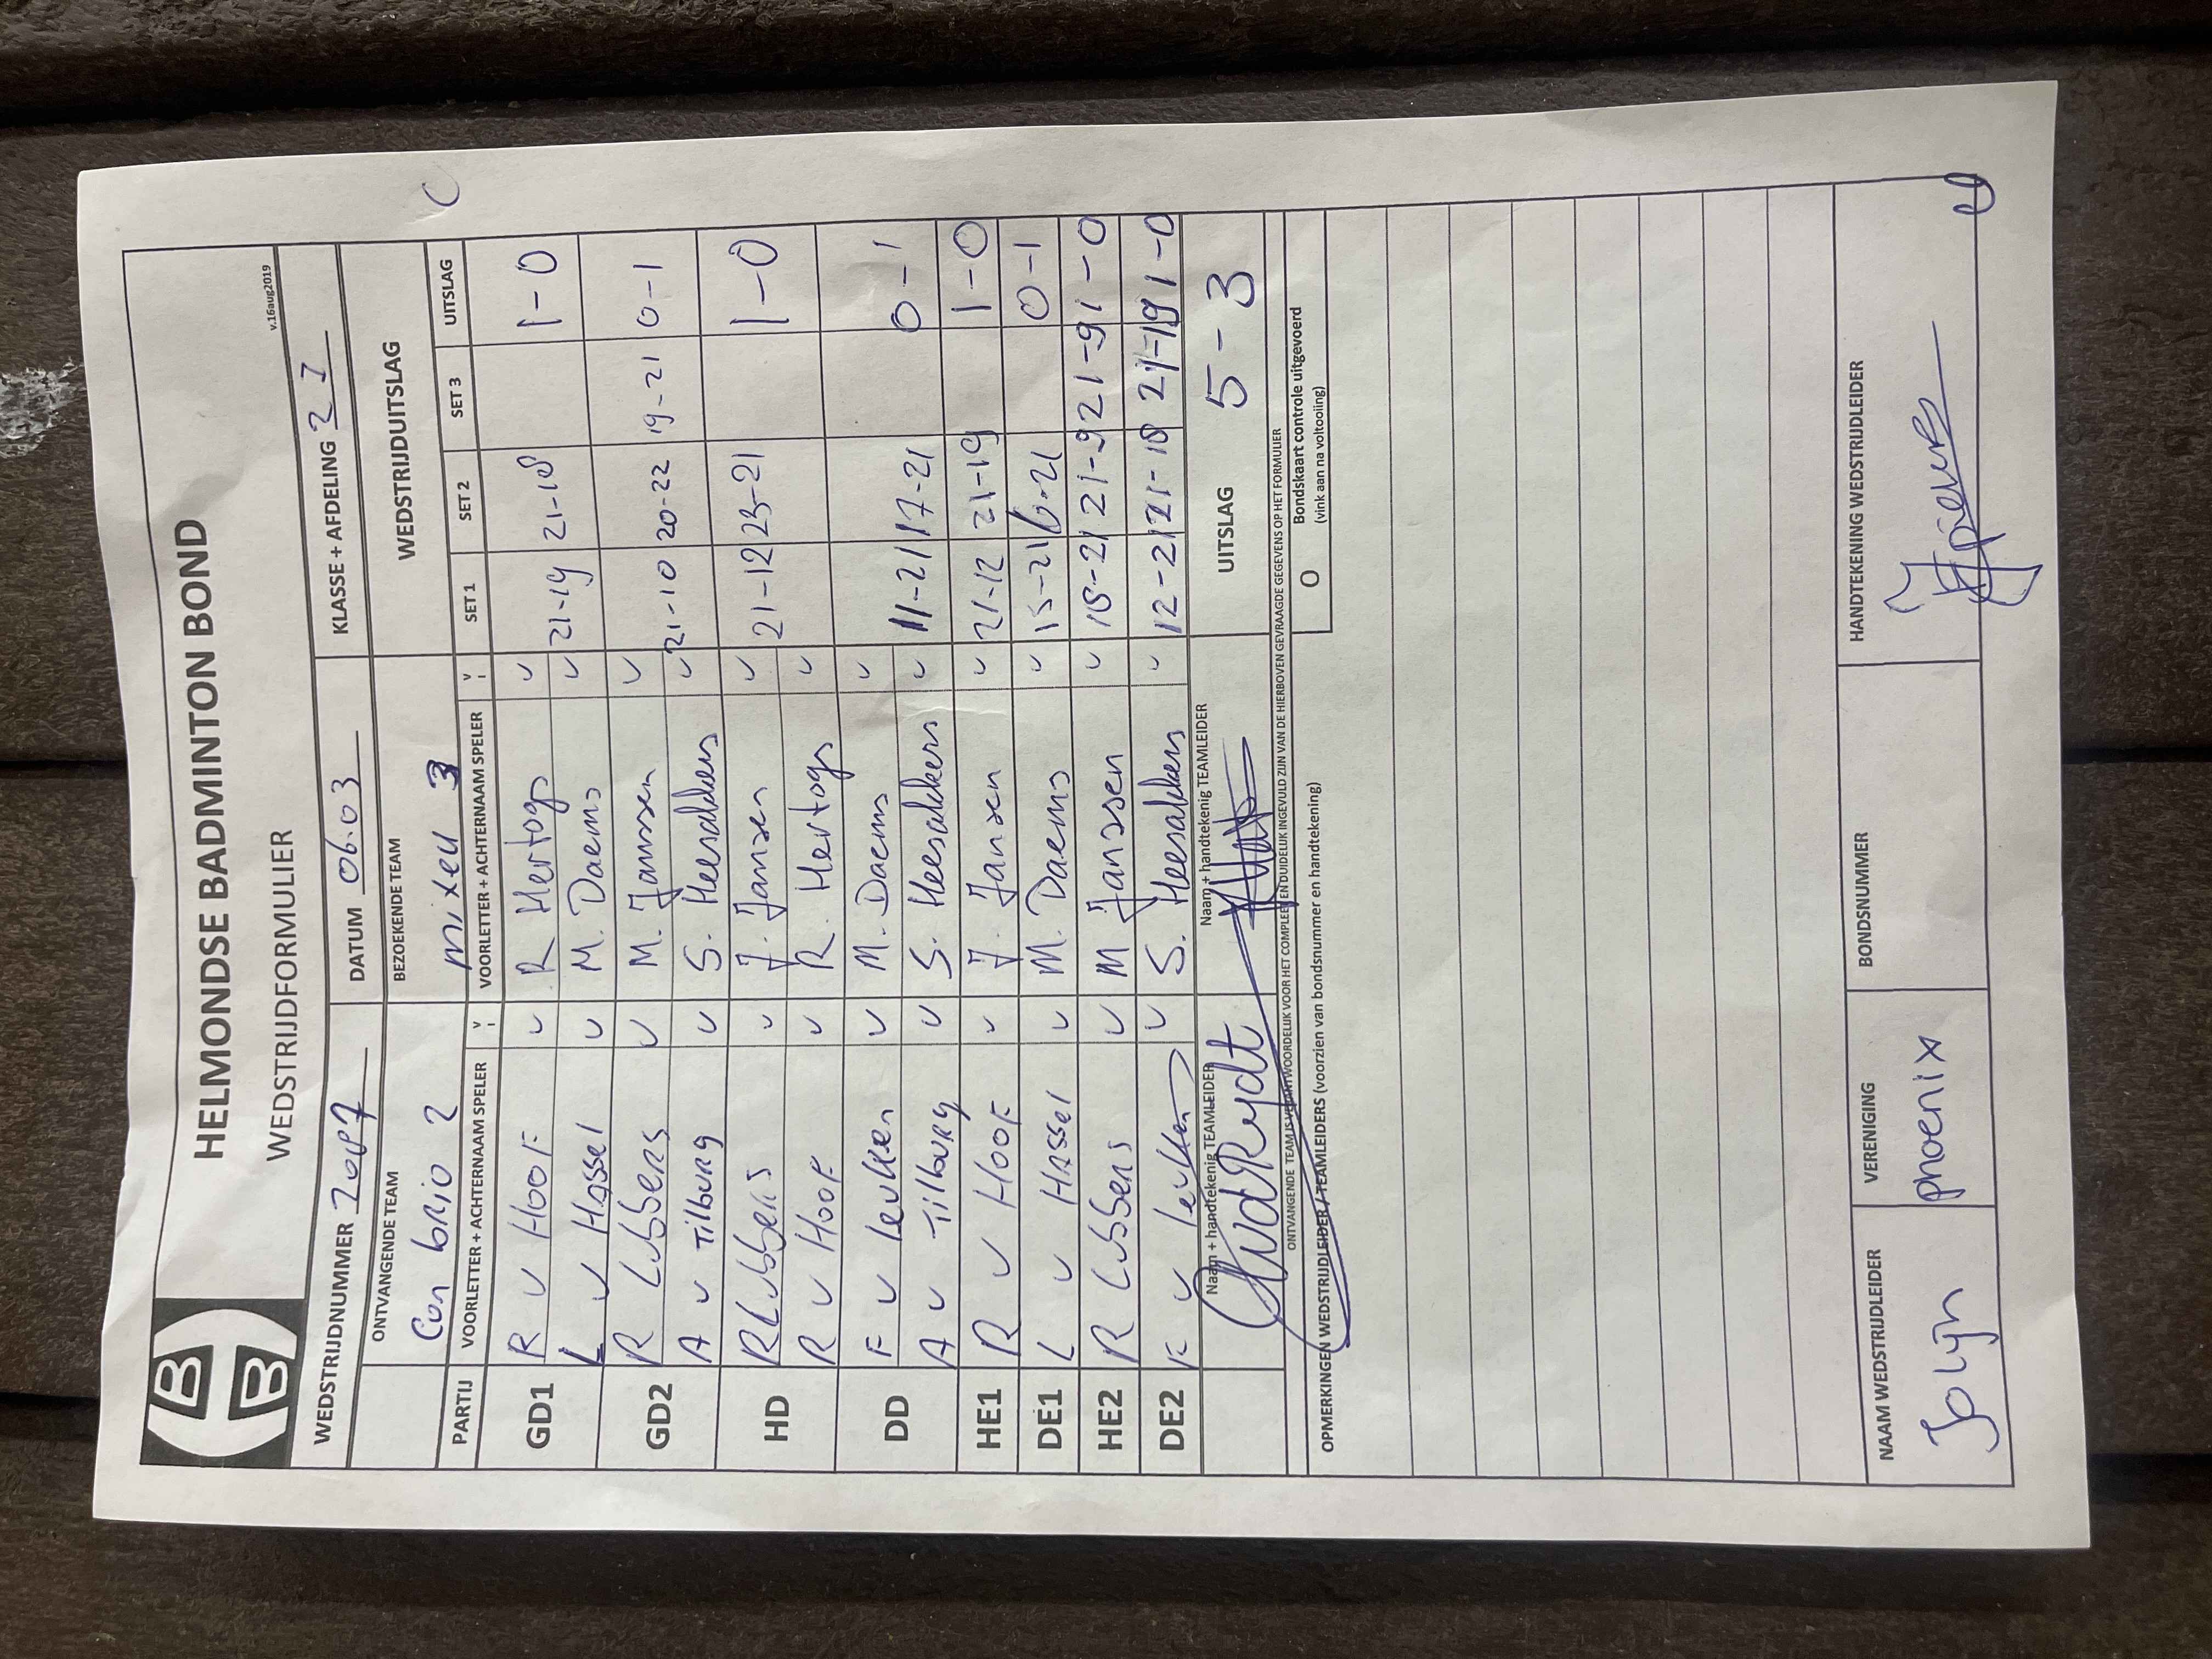 HELMONDSE BADMINTON BOND
WEDSTRIJDFORMULIER
v.16aug2019
WEDSTRIJDNUMMER DATUM 06.03 KLASSE + AFDELING 21
ONTVANGENDE TEAM BEZOEKENDE TEAM WEDSTRIJDUITSLAG
Con brio 2 mixed 3
PARTIJ VOORLETTER + ACHTERNAAM SPELER V VOORLETTER + ACHTERNAAM SPELER V SET 1 SET 2 SET 3 UITSLAG
GD1 R v HOOF v R Hertogs v 1-0
L v Hassel v M. Daems v 21-19 21-18
GD2 R Lubbers v M. Janssen v
A v Tilburg v S. Heesakkers v 21-10 20-22 19-21 0-1
HD R Lubbers v J. Jansen v 21-12 23-21 1-0
R v HOOF v R. Hertogs v
DD F v Leuken v M. Daems v
A v Tilburg v S. Heesakkers v 11-21 17-21 0-1
HE1 R v HOOF v J. Jansen v 21-12 21-19 1-0
DE1 L v Hassel v M. Daems v 15-21 6-21 0-1
HE2 R Lubbers v M Janssen v 18-21 21-9 21-9 1-0
DE2 F v Leuken v S. Heesakkers v 12-21 21-18 21-19 1-0
Naam + handtekenig TEAMLEIDER Naam + handtekenig TEAMLEIDER UITSLAG 5-3
ONTVANGENDE TEAM IS VERANTWOORDELIJK VOOR HET COMPLEET EN DUIDELIJK INGEVULD ZIJN VAN DE HIERBOVEN GEVRAAGDE GEGEVENS OP HET FORMULIER
OPMERKINGEN WEDSTRIJDLEIDER / TEAMLEIDERS (voorzien van bondsnummer en handtekening) O Bondskaart controle uitgevoerd
(vink aan na voltooiing)
NAAM WEDSTRIJDLEIDER VERENIGING BONDSNUMMER HANDTEKENING WEDSTRIJDLEIDER
Jolijn phoenix